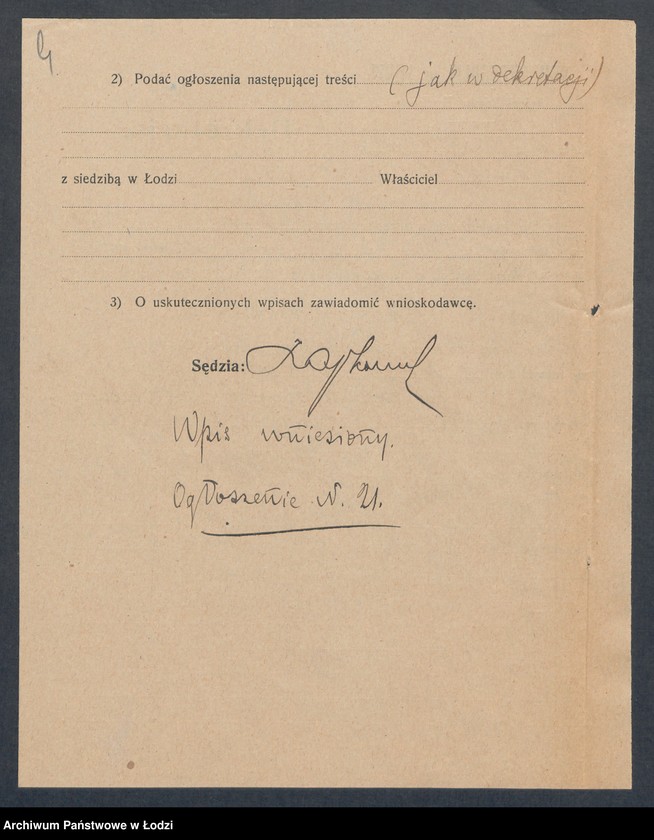 2) Podać ogłoszenia następującej treści (jak w dekretacji)
z siedzibą w Łodzi Właściciel
3) O uskutecznionych wpisach zawiadomić wnioskodawcę.
Sędzia:
Wpis wniesiony.
Ogłoszenie N. 21.
Archiwum Państwowe w Łodzi